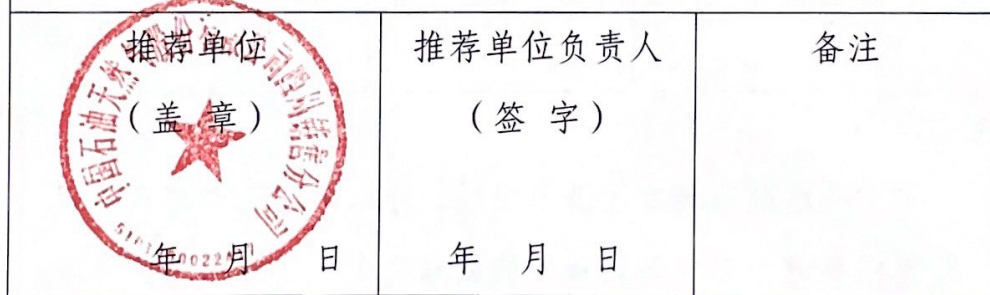 推荐单位
（盖 章）
年 月 日
推荐单位负责人
（签 字）
年 月 日
备注
中国石油天然气股份有限公司四川销售分公司